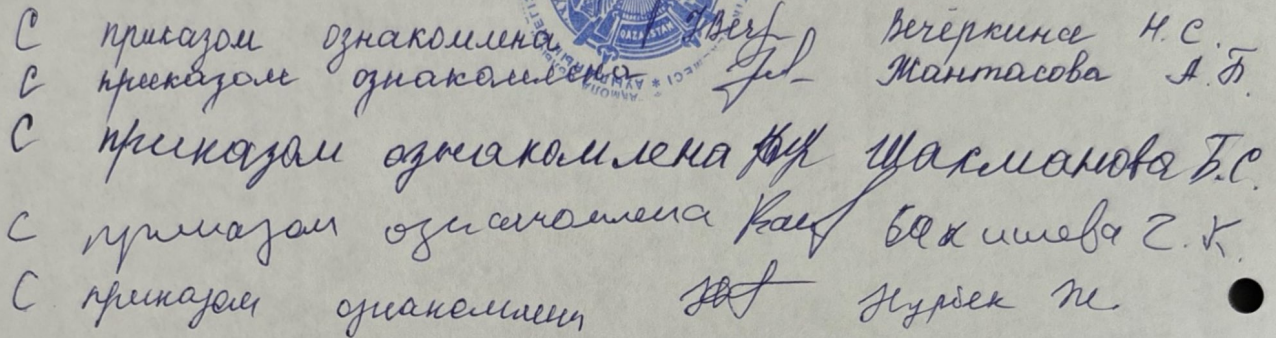 С приказом ознакомлена Вечёркина Н.С.
С приказом ознакомлена Жантасова А.Б.
С приказом ознакомлена Шакманова Б.С.
С приказом ознакомлена Бакишева Г.К.
С приказом ознакомлен Нурбек Ж.
ҚАЗАҚСТАН